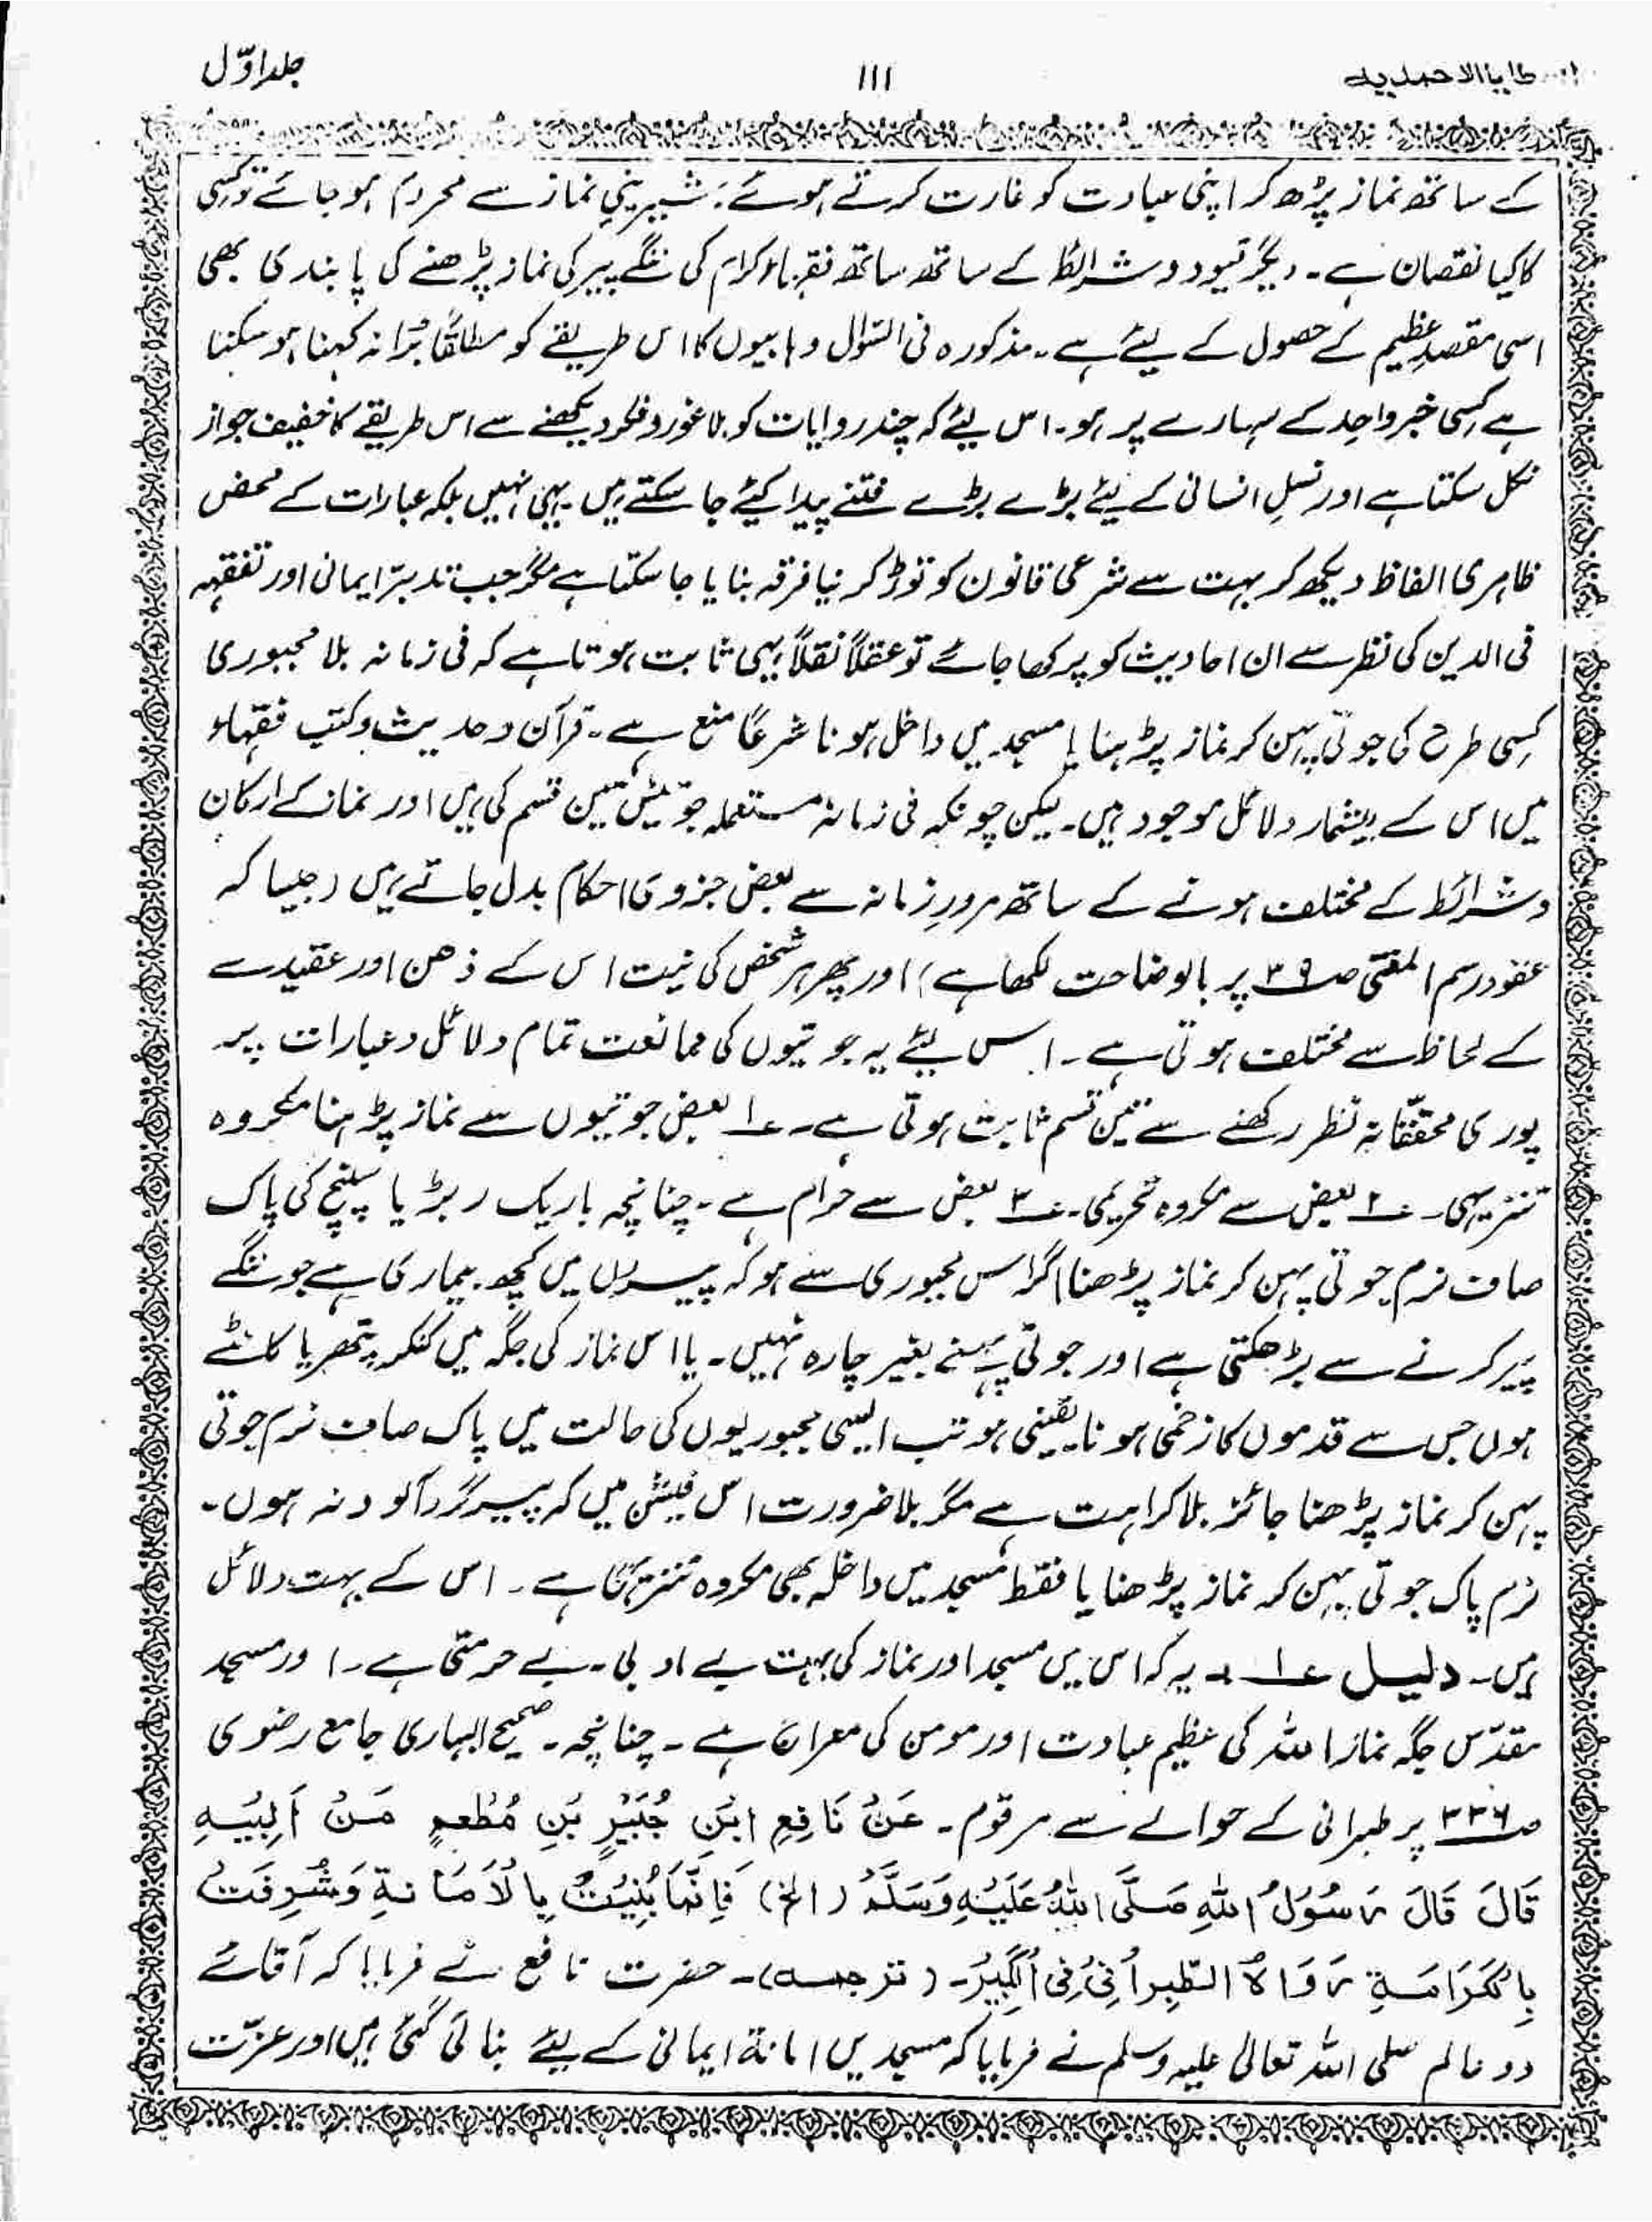 العطایا الاحمدیہ ۱۱۱ جلد اوّل
کے ساتھ نماز پڑھ کر اپنی عبادت کو غارت کرتے ہوئے، شیرینیِ نماز سے محروم ہو جائے تو کسی
کا کیا نقصان ہے۔ دیگر قیود و شرائط کے ساتھ ساتھ فقہاء کرام کی ننگے پیر کی نماز پڑھنے کی پابندی بھی
اسی مقصدِ عظیم کے حصول کے لیئے ہے۔ مذکورہ فی السّوال وہابیوں کا اس طریقے کو مطلقًا بُرا نہ کہنا ہو سکتا
ہے کسی خبرِ واحد کے سہارے پر ہو۔ اس لیئے کہ چند روایات کو بلا غور و فکر دیکھنے سے اس طریقے کا خفیف جواز
نکل سکتا ہے اور نسلِ انسانی کے لیئے بڑے بڑے فتنے پیدا کیئے جا سکتے ہیں یہی نہیں بلکہ عبارات کے محض
ظاہری الفاظ دیکھ کر بہت سے شرعی قانون کو توڑ کر نیا فرقہ بنایا جا سکتا ہے مگر جب تدبّرِ ایمانی اور تفقہ
فی الدین کی نظر سے ان احادیث کو پرکھا جائے تو عقلاً نقلاً یہی ثابت ہوتا ہے کہ فی زمانہ بلا مجبوری
کسی طرح کی جوتی پہن کر نماز پڑہنا یا مسجد میں داخل ہونا شرعًا منع ہے۔ قرآن و حدیث و کتبِ فقہاء
میں اس کے بیشمار دلائل موجود ہیں۔ لیکن چونکہ فی زمانہ مستعملہ جوتیئں تین قسم کی ہیں اور نماز کے ارکان
و شرائط کے مختلف ہونے کے ساتھ مرورِ زمانہ سے بعض جزوی احکام بدل جاتے ہیں (جیسا کہ
عقود رسم المفتی صـ۳۹ پر بالوضاحت لکھا ہے) اور پھر ہر شخص کی نیت اس کے ذھن اور عقیدے
کے لحاظ سے مختلف ہوتی ہے۔ اس لیئے یہ جوتیوں کی ممانعت تمام دلائل و عبارات پر
پوری محققّانہ نظر رکھنے سے تین قسم ثابت ہوتی ہے۔ ۱؎ بعض جوتیوں سے نماز پڑہنا مکروہ
تنزیہی۔ ۲؎ بعض سے مکروہ تحریمی۔ ۳؎ بعض سے حرام ہے۔ چنانچہ باریک ربڑ یا سپنج کی پاک
صاف نرم جوتی پہن کر نماز پڑھنا اگر اس مجبوری سے ہو کہ پیروں میں کچھ بیماری ہے جو ننگے
پیر کرنے سے بڑھ سکتی ہے اور جوتی پہنے بغیر چارہ نہیں۔ یا اس نماز کی جگہ میں کنکر پتھر یا کانٹے
ہوں جس سے قدموں کا زخمی ہونا یقینی ہو تب ایسی مجبوریوں کی حالت میں پاک صاف نرم جوتی
پہن کر نماز پڑھنا جائز بلا کراہت ہے مگر بلا ضرورت اس فیشن میں کہ پیر گرد آلود نہ ہوں۔
نرم پاک جوتی پہن کر نماز پڑھنا یا فقط مسجد میں داخلہ بھی مکروہ تنزیہًا ہے۔ اس کے بہت دلائل
ہیں۔ دلیل ۱؎۔ یہ کہ اس میں مسجد اور نماز کی بہت بے ادبی۔ بے حرمتی ہے۔ اور مسجد
مقدّس جگہ نماز اللہ کی عظیم عبادت اور مومن کی معراج ہے۔ چنانچہ۔ صحیح البہاری جامع رضوی
صـ۳۳۶ پر طبرانی کے حوالے سے مرقوم۔ عَنْ نَافِعِ ابْنِ جُبَیْرٍ بَنِ مُطْعِمٍ مَنْ اَبِیْہِ
قَالَ قَالَ رَسُوْلُ اللّٰہِ صَلَّی اللّٰہُ عَلَیْہِ وَسَلَّمْ (الخ) فَاِنَّمَا بُنِیَتْ بِالْاَمَانَةِ وَشُرِفَتْ
بِالْکَرَامَةِ رَوَاہُ الطَّبِرَانِیُ فِی اْلکَبِیْرُ۔ (ترجمہ)۔ حضرت نافع نے فرمایا کہ آقائے
دو عالم صلی اللہ تعالیٰ علیہ وسلم نے فرمایا کہ مسجدیں امانۃ ایمانی کے لیئے بنائی گئی ہیں اور عزّت